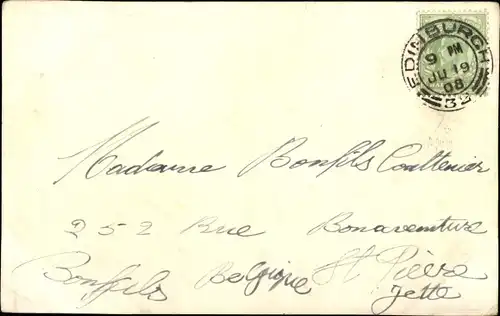 EDINBURGH
9 PM
JU 19
08
Madame Bonfils Coultenier
252 Rue Bonaventure
Bonfils Belgique St Pierre
Jette